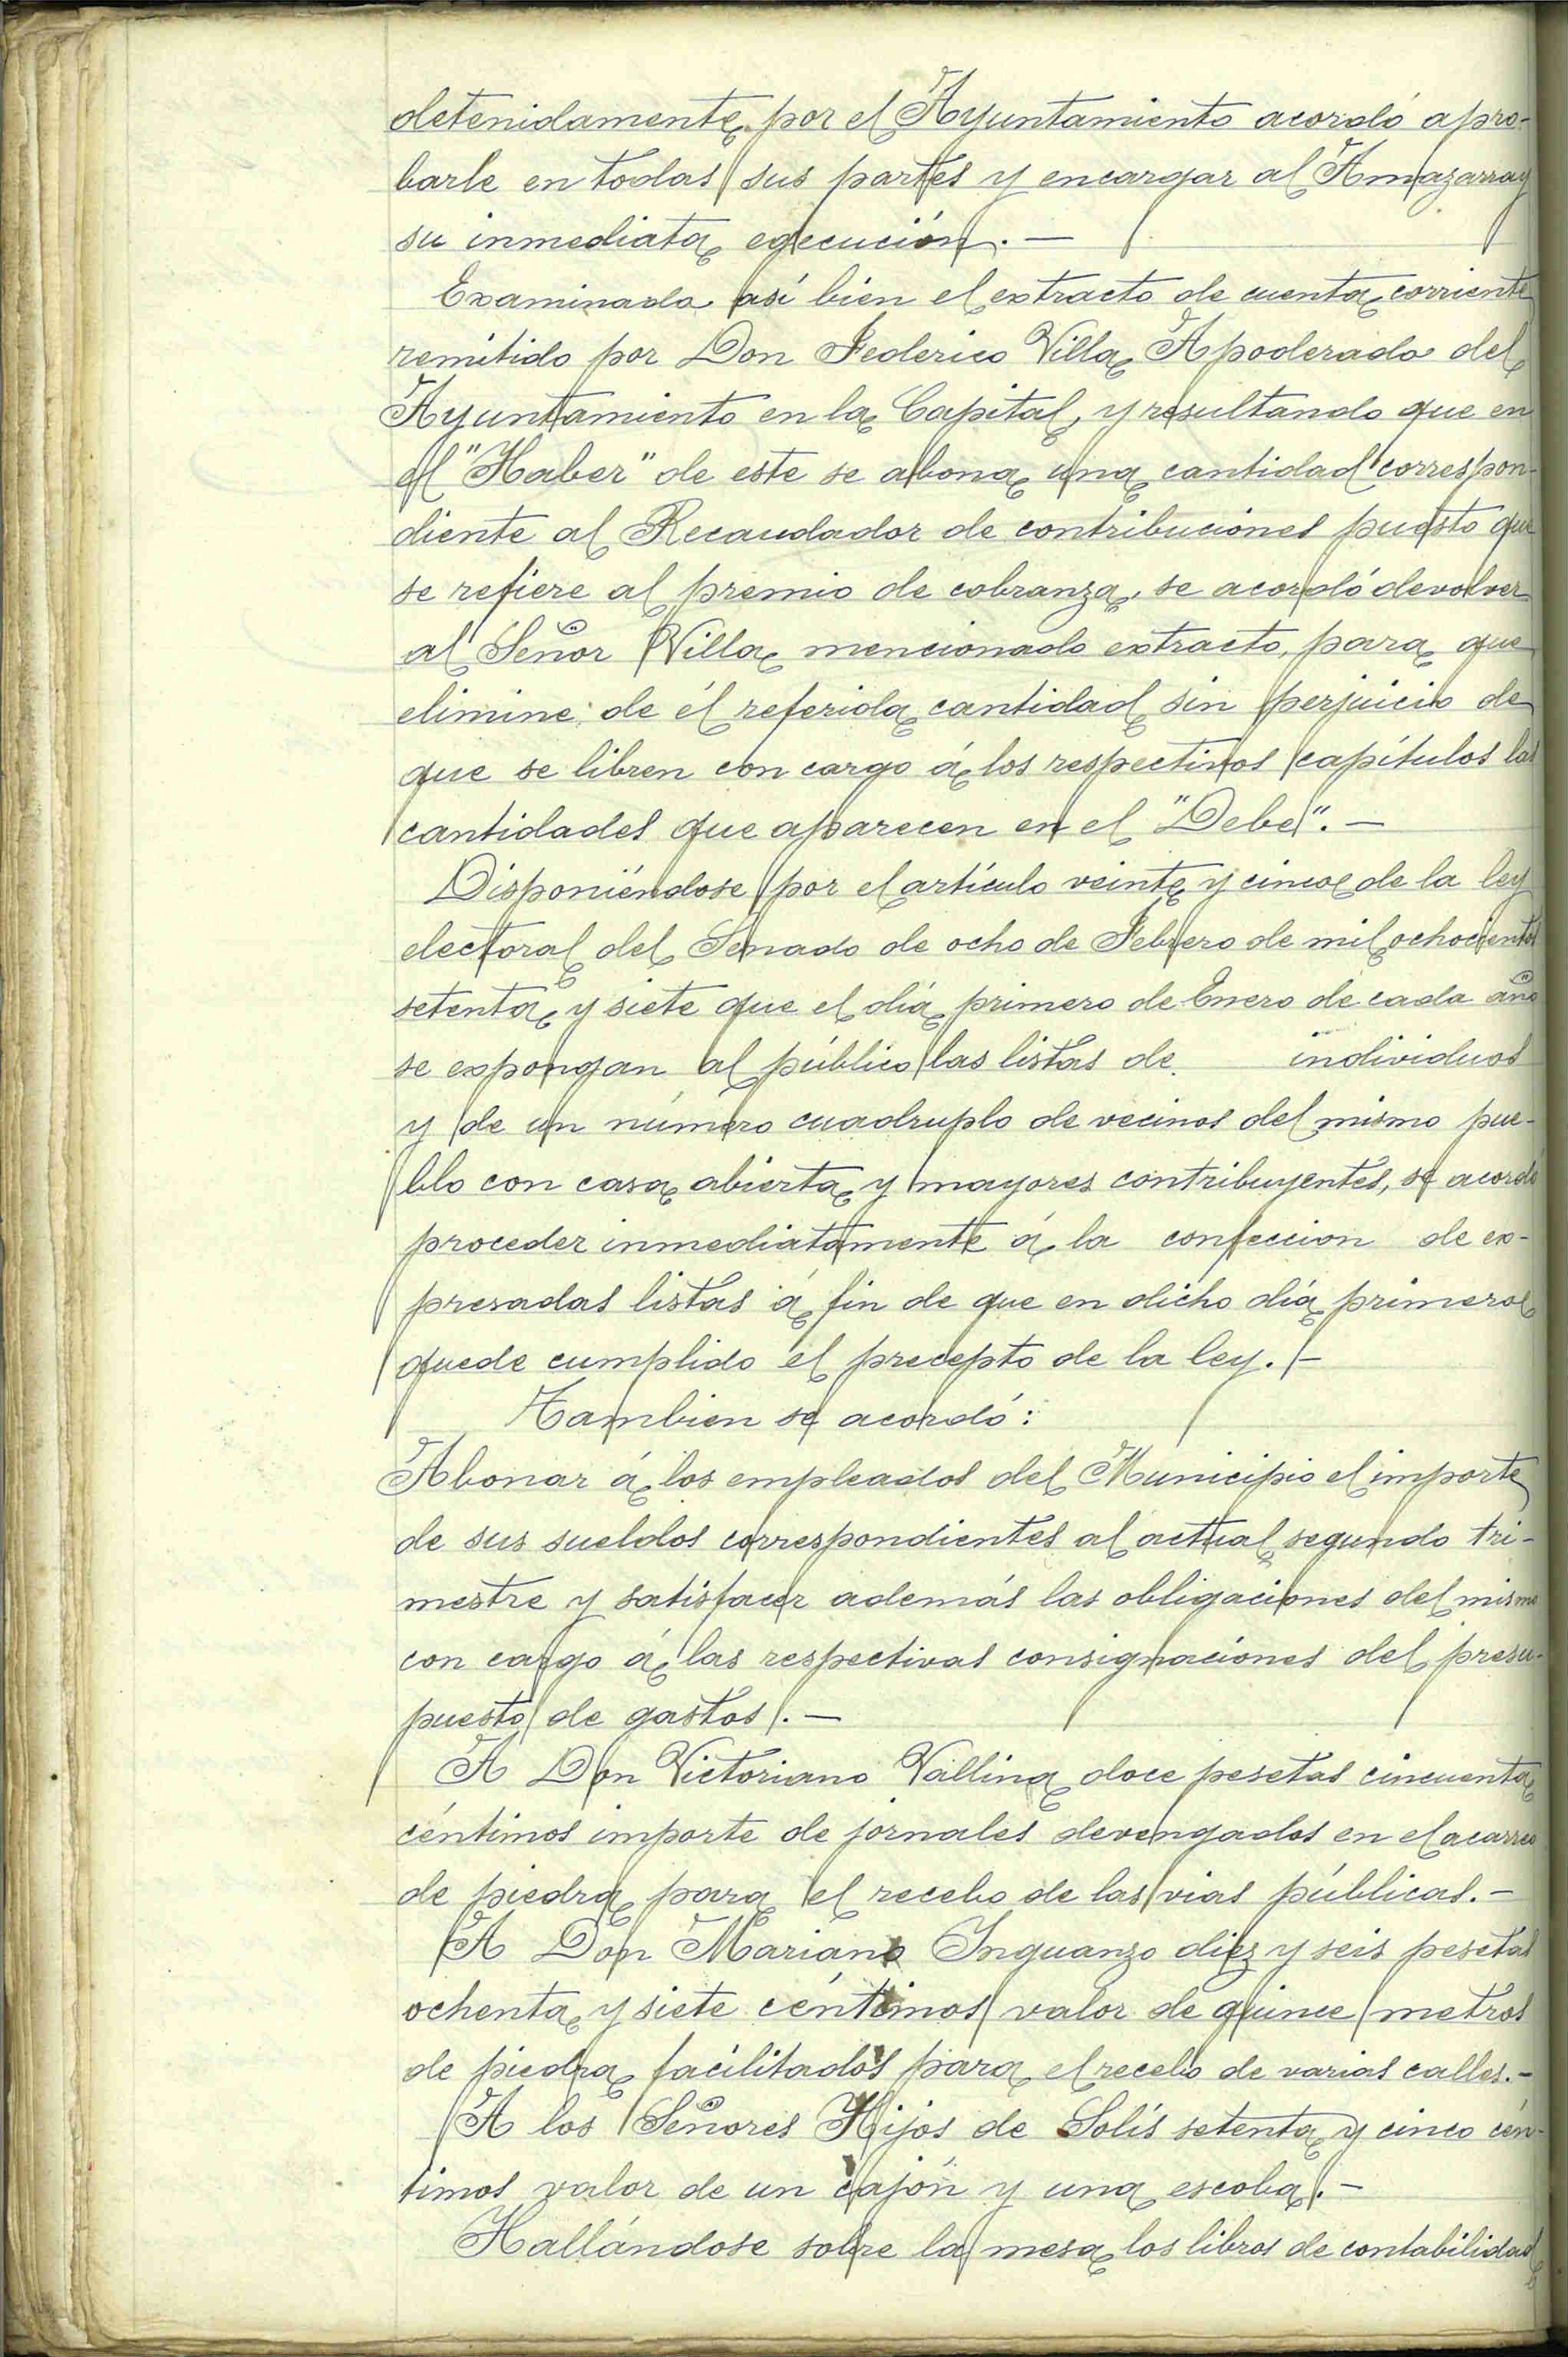 detenidamente por el Ayuntamiento acordó apro-
barle en todas sus partes y encargar al Amazarray
su inmediata egecución. —
Examinado así bién el extracto de cuenta corriente
remitido por Don Federico Villa Apoderado del
Ayuntamiento en la Capital, y resultando que en
el "Haber" de este se abona una cantidad correspon-
diente al Recaudador de contribuciónes puesto que
se refiere al premio de cobranza, se acordó devolver
al Señor Villa mencionado extracto, para que
elimine de él referida cantidad sin perjuicio de
que se libren con cargo á los respectivos capítulos las
cantidades que aparecen en el "Debe". —
Disponiéndose por el artículo veinte y cinco de la ley
electoral del Senado de ocho de Febrero de mil ochocientos
setenta y siete que el día primero de Enero de cada año
se expongan al público las listas de individuos
y de un número cuadruplo de vecinos del mismo pue-
blo con casa abierta y mayores contribuyentes, se acordó
proceder inmediatamente á la confeccion de ex-
presadas listas á fin de que en dicho día primero
quede cumplido el precepto de la ley. —
Tambien se acordó:
Abonar á los empleados del Municipio el importe
de sus sueldos correspondientes al actual segundo tri-
mestre y satisfacer además las obligaciones del mismo
con cargo á las respectivas consignaciónes del presu-
puesto de gastos. —
A Don Victoriano Vallina doce pesetas cincuenta
céntimos importe de jornales devengados en el acarreo
de piedra para el recebo de las vias públicas. —
A Don Mariano Inguanzo diez y seis pesetas
ochenta y siete céntimos valor de quince metros
de piedra facilitados para el recebo de varias calles. —
A los Señores Hijos de Solís setenta y cinco cén-
timos valor de un cajón y una escoba. —
Hallándose sobre la mesa los libros de contabilidad